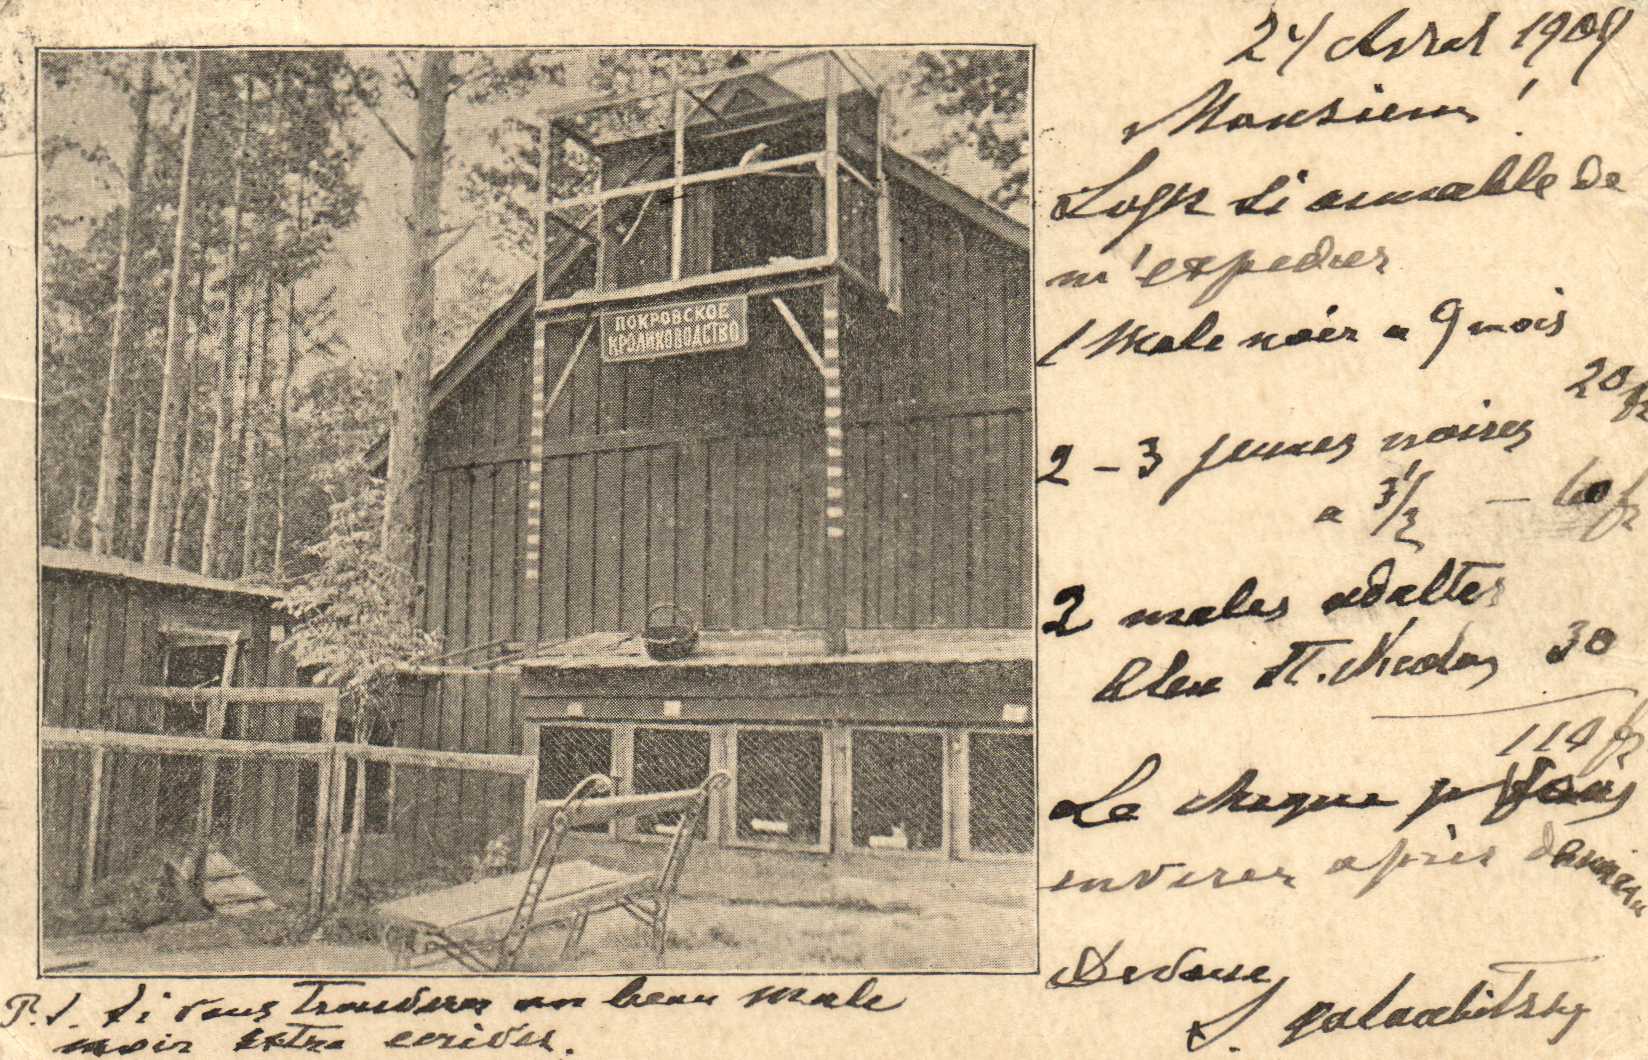 24 Avril 1909
Monsieur!
Soyez si aimable de
m'expedier
1 Male noir a 9 mois
20 fr
2 – 3 jeunes noires
a 3 1/2 – 60 fr
2 males adultes
bleu St. Nicolas 30
110 fr
Le cheque je
enverer après
Devoue
S. Galaabitsky
ПОКРОВСКОЕ
КРОЛИКОВОДСТВО
P.S. Si vous trouveres un beau male
noir extra ecrives.